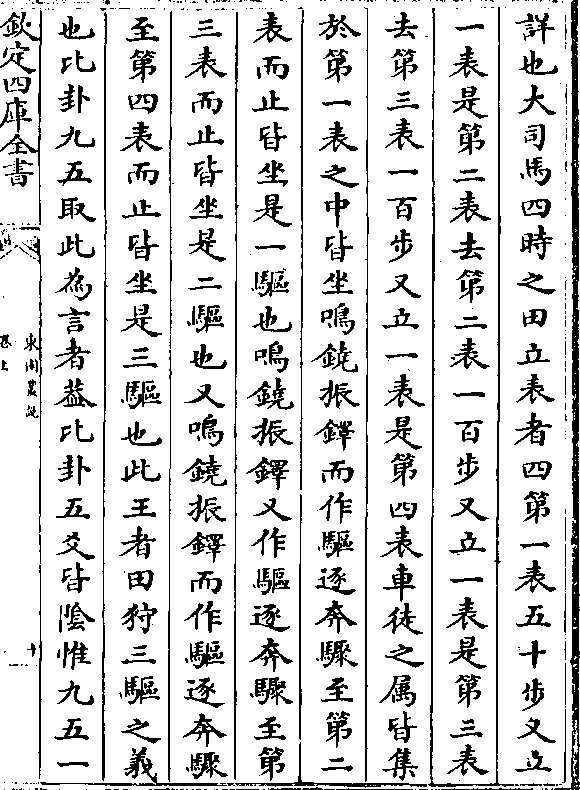 詳也大司馬四時之田立表者四第一表五十步又立
一表是第二表去第二表一百步又立一表是第三表
去第三表一百步又立一表是第四表車徒之属皆集
於第一表之中皆坐鳴鐃振鐸而作驅逐奔驟至第二
表而止皆坐是一驅也鳴鐃振鐸又作驅逐奔驟至第
三表而止皆坐是二驅也又鳴鐃振鐸而作驅逐奔驟
至第四表而止皆坐是三驅也此王者田狩三驅之義
也比卦九五取此為言者葢比卦五爻皆隂惟九五一
欽定四庫全書
東園叢説
卷上
十